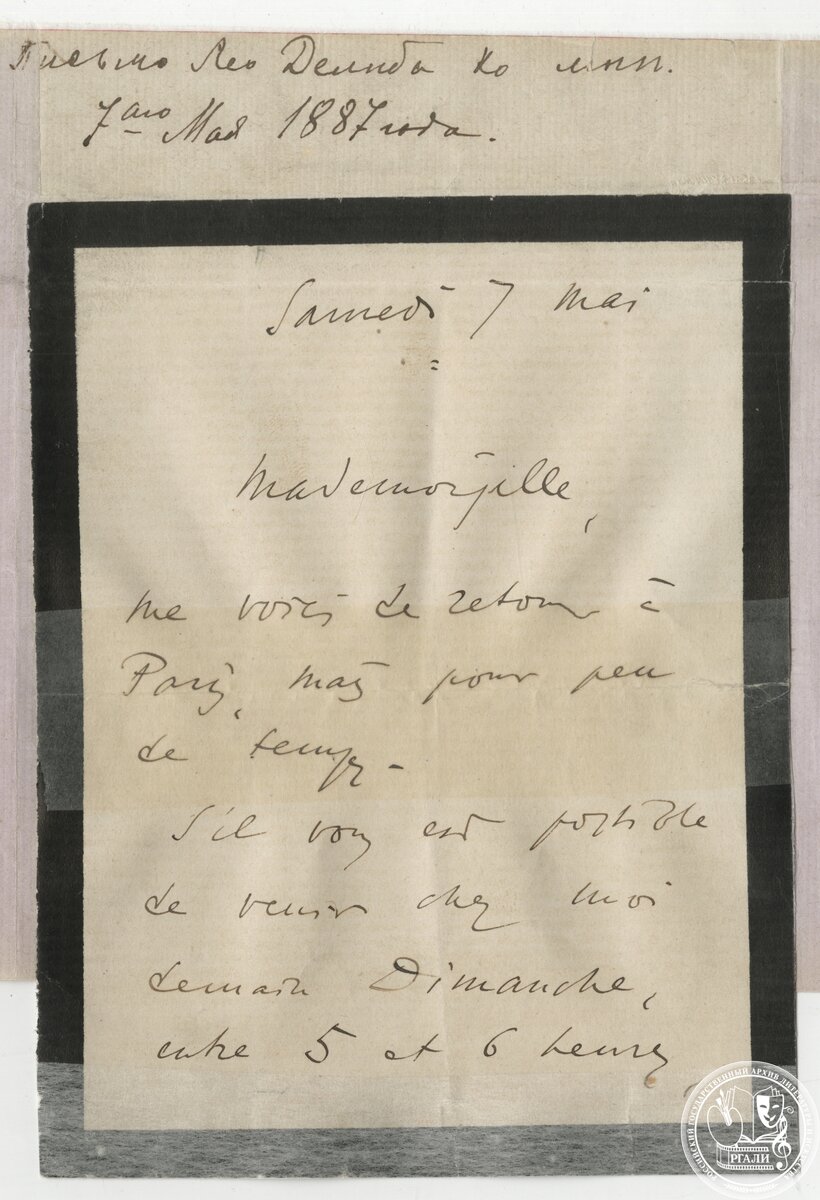 Письмо Лео Делиба ко мнѣ.
7аго Мая 1887 года.
Samedi 7 mai
Mademoiselle,
me voici de retour à
Paris, mais pour peu
de temps -
S'il vous est possible
de venir chez moi
demain Dimanche,
entre 5 et 6 heures
РОССИЙСКИЙ ГОСУДАРСТВЕННЫЙ АРХИВ ЛИТЕРАТУРЫ И ИСКУССТВА
РГАЛИ